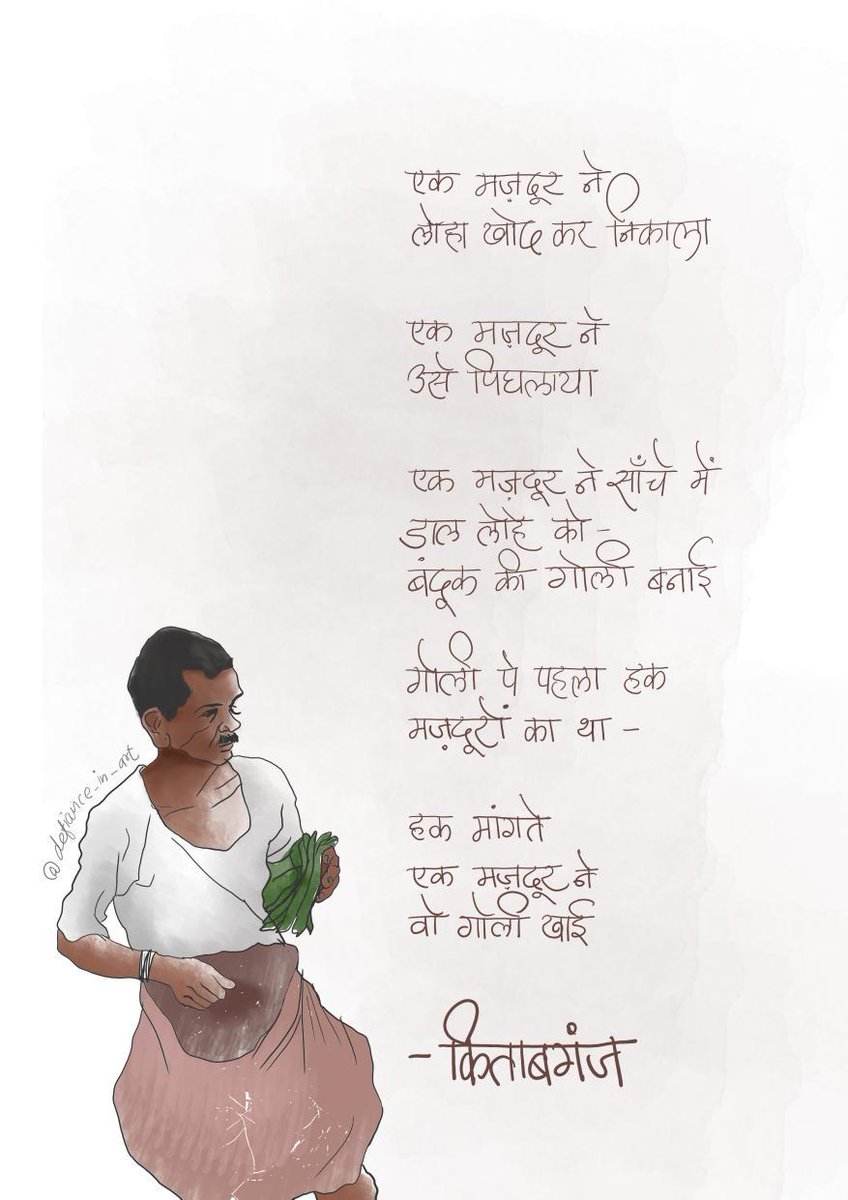 एक मज़दूर ने
लोहा खोद कर निकाला
एक मज़दूर ने
उसे पिघलाया
एक मज़दूर ने साँचे में
डाल लोहे को -
बंदूक की गोली बनाई
गोली पे पहला हक
मज़दूरों का था -
हक मांगते
एक मज़दूर ने
वो गोली खाई
- किताबगंज
@defiance_in_art